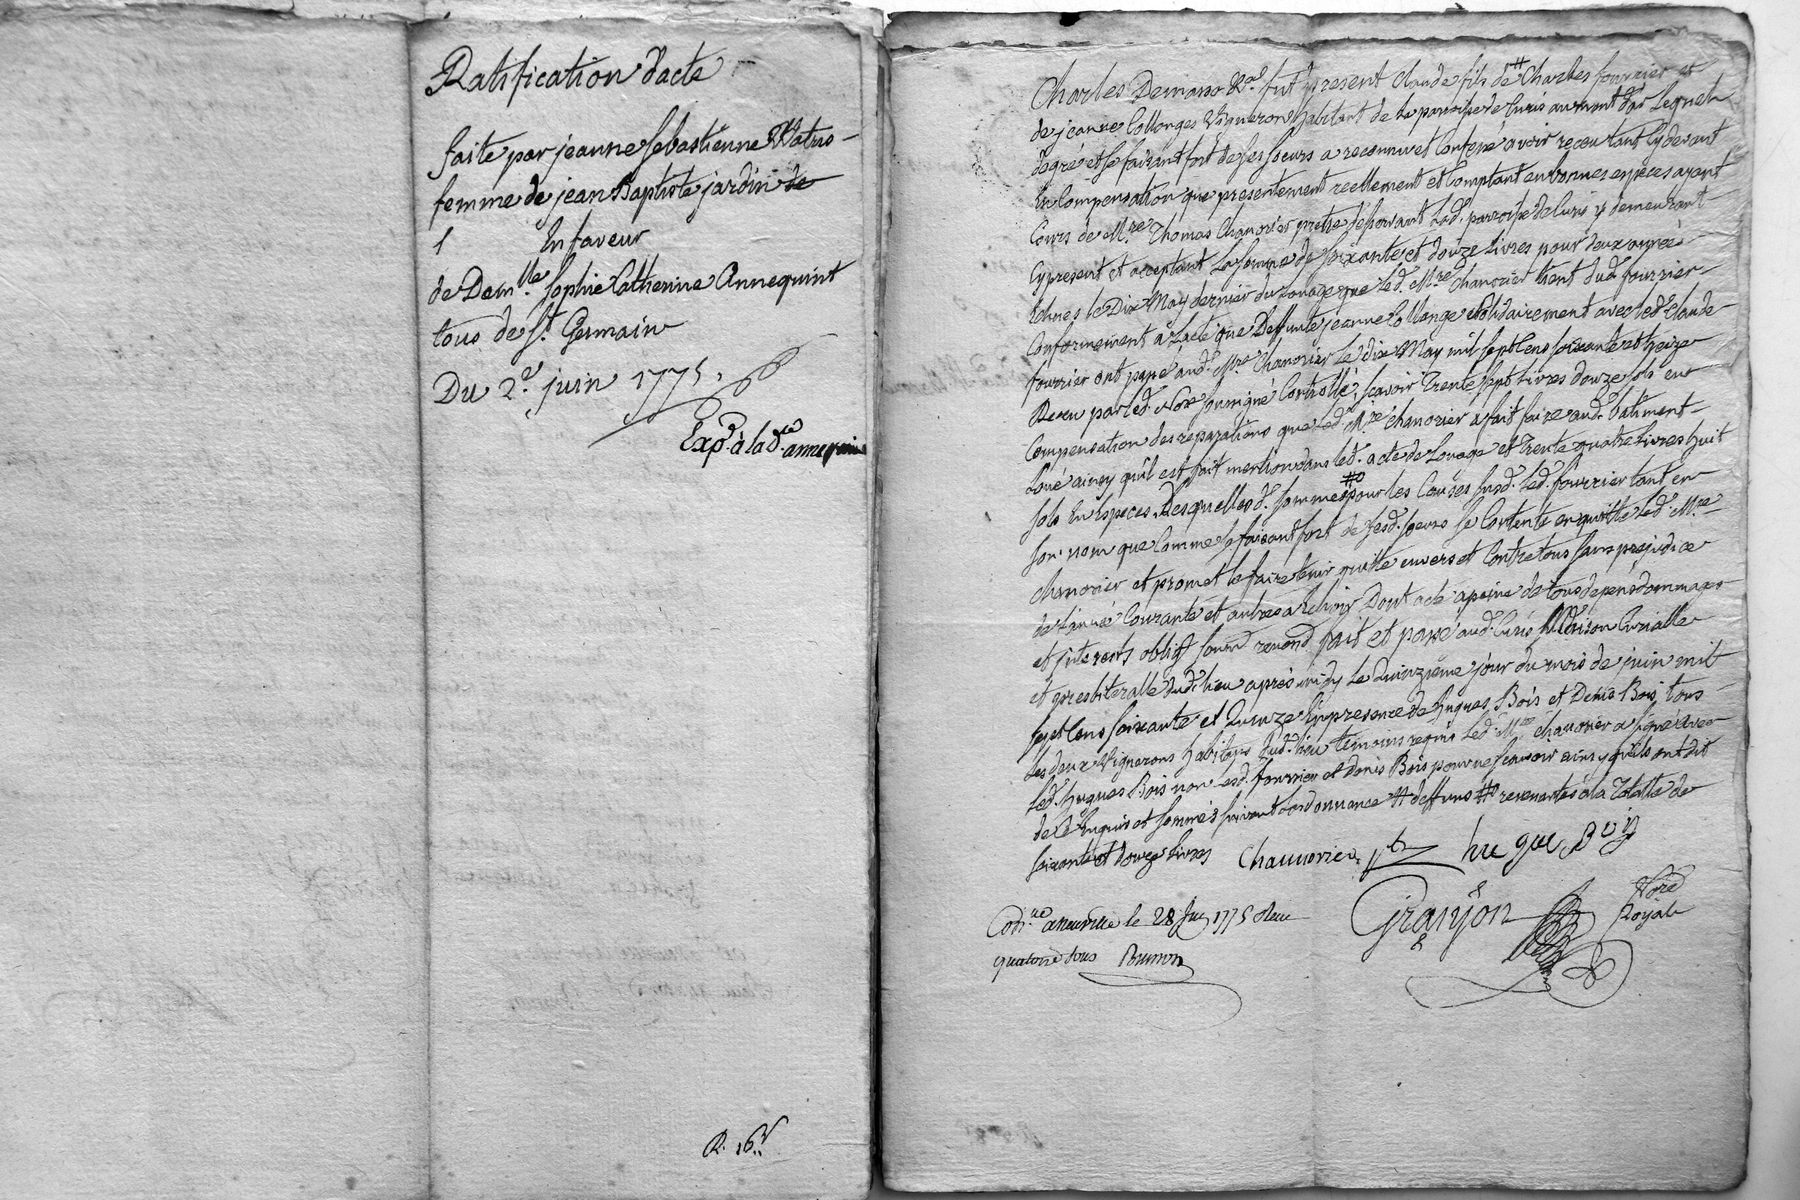 Ratification d'acte
faite par jeanne sebastienne
femme de jean Baptiste jardin de
1 En faveur
de Dem.lle Sophie Catherine Annequint
tous de St. Germain
Du 2.e juin 1775.
Exp.ᵉ à lad.te annequin
R. 16
Charles Demans fut present Claude fils de # Charles fournier et
de jeanne Collonges Vigneron habitant de la paroisse de Curis au mont d'or Lequel
degré et se faisant fort de ses soeurs a reconnu et Confessé avoir receu tant cy devant
En Compensation que presentement reellement et Comptant en bonnes especes ayant
Cours de M.re Thomas Chanorier pretre desservant lad. paroisse de Curis y demeurant
cy present et acceptant La somme de soixante et douze Livres pour deux années
Echues le Dix May dernier du Louage que led. M.re Chanorier tient dud. fournier
Conformement à L'acte que Deffunte jeanne Collonge solidairement avec led. Claude
fournier ont passé aud. M.re Chanorier le dix May mil sept Cens soixante et treize
Receu par led. No.re soussigné Controllé, scavoir Trente sept Livres douze sols en
Compensation des reparations que led. M.re Chanorier a fait faire aud. batiment
Loué ainsy qu'il est fait mention dans led. acte de Louage et Trente quatre Livres huit
sols En Especes Desquelles d. sommes # pour les Causes susd. led. fournier tant en
son nom que Comme se faisant fort de sesd. soeurs se Contente en quitte led. M.re
Chanorier et promet le faire tenir quitte envers et Contre tous sans prejudice
de l'année Courante et autres a Echoir Dont acte a peine de tous depens dommages
et interests oblig. soum. renond. fait et passé aud. Curis Maison Curialle
et presbiteralle dud. lieu après midy Le Quinzieme jour du mois de juin mil
sept Cens soixante et Quinze En presence de hugues Bois et Denis Bois tous
les deux Vignerons habitans dud. lieu temoins requis led. M.re chanorier a signé avec
led. hugues Bois non led. fournier et denis Bois pour ne scavoir ainsy qu'ils ont dit
de ce Enquis et sommés suivant L'ordonnance # deffuns # revenantes à la Totalité de
soixante et douze Livres Chanorier ptr hugue Boy
Granjon No.re Royal
Con.lé a neuville le 28 juin 1775 Receu
quatorze sous Brunon